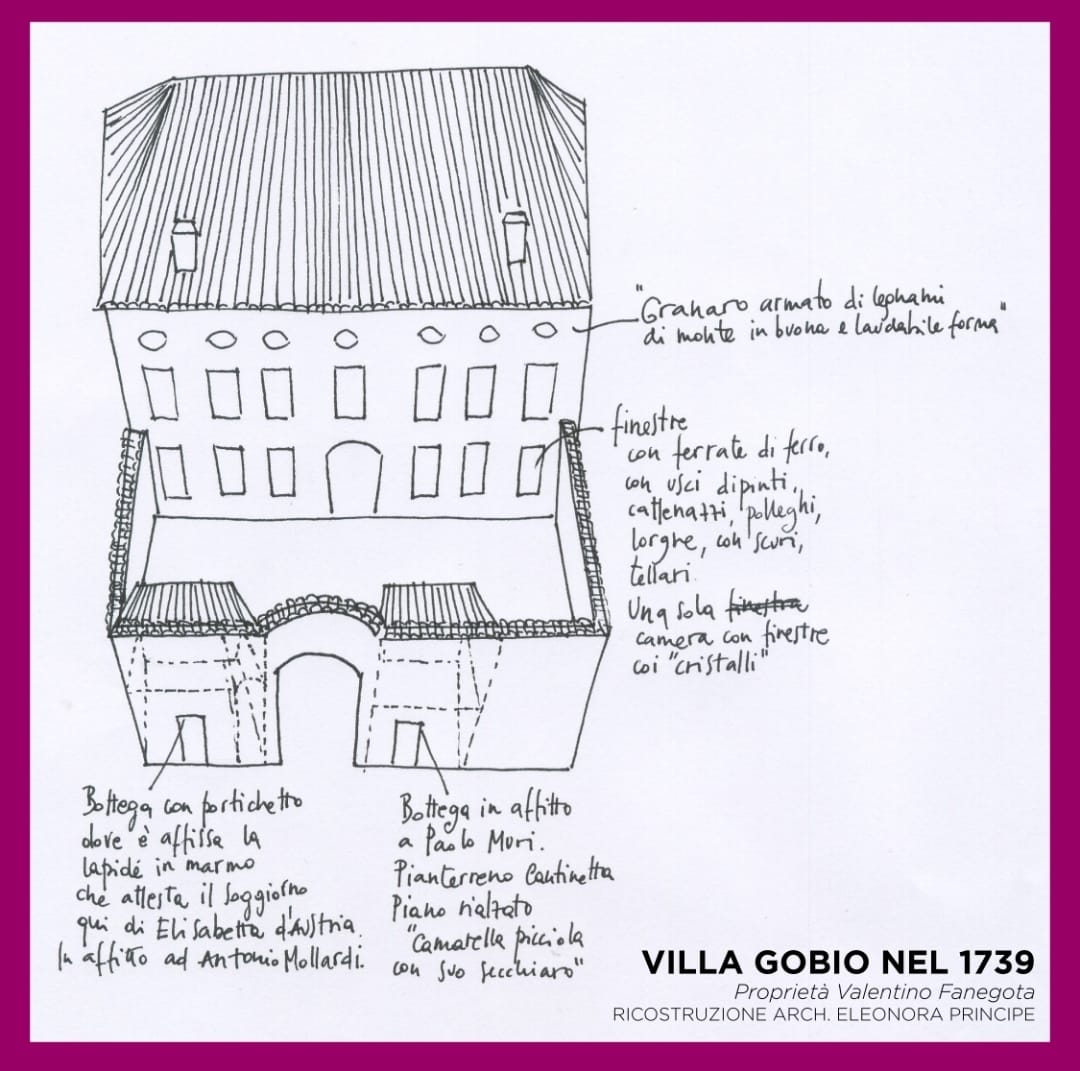 "Granaro armato di legnami
di monte in buona e laudabile forma"
finestre
con ferrate di ferro,
con usci dipinti,
cattenazzi, polleghi,
lorghe, con scuri,
tellari.
Una sola finestra
camera con finestre
coi "cristalli"
Bottega con portichetto
dove è affissa la
lapide in marmo
che attesta il soggiorno
qui di Elisabetta d'Austria.
In affitto ad Antonio Mollardi.
Bottega in affitto
a Paolo Mori.
Pianterreno Cantinetta
Piano rialzato
"Camarella picciola
con suo secchiaro"
VILLA GOBIO NEL 1739
Proprietà Valentino Fanegota
RICOSTRUZIONE ARCH. ELEONORA PRINCIPE